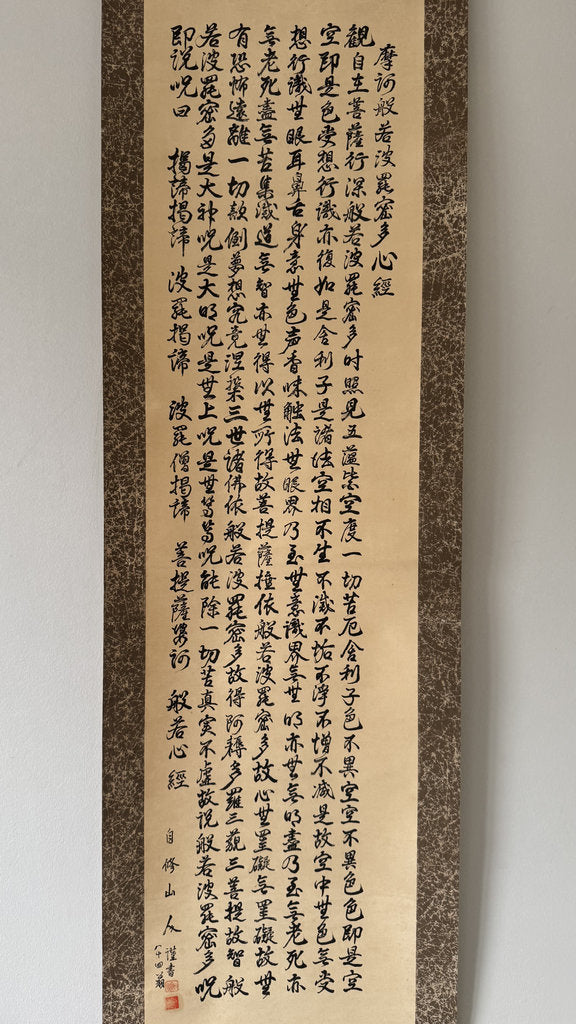 摩訶般若波羅蜜多心經
觀自在菩薩行深般若波羅蜜多时照見五蘊皆空度一切苦厄舍利子色不異空空不異色色即是空
空即是色受想行識亦復如是舍利子是諸法空相不生不滅不垢不淨不增不減是故空中無色無受
想行識無眼耳鼻舌身意無色声香味触法無眼界乃至無意識界無無明亦無無明盡乃至無老死亦
無老死盡無苦集滅道無智亦無得以無所得故菩提薩埵依般若波羅蜜多故心無罣礙無罣礙故無
有恐怖遠離一切顛倒夢想究竟涅槃三世諸佛依般若波羅蜜多故得阿耨多羅三藐三菩提故智般
若波羅蜜多是大神呪是大明呪是無上呪是無等等呪能除一切苦真実不虚故説般若波羅蜜多呪
即説呪曰 揭諦揭諦 波羅揭諦 波羅僧揭諦 菩提薩婆訶 般若心經
自修山
謹書
八十四翁